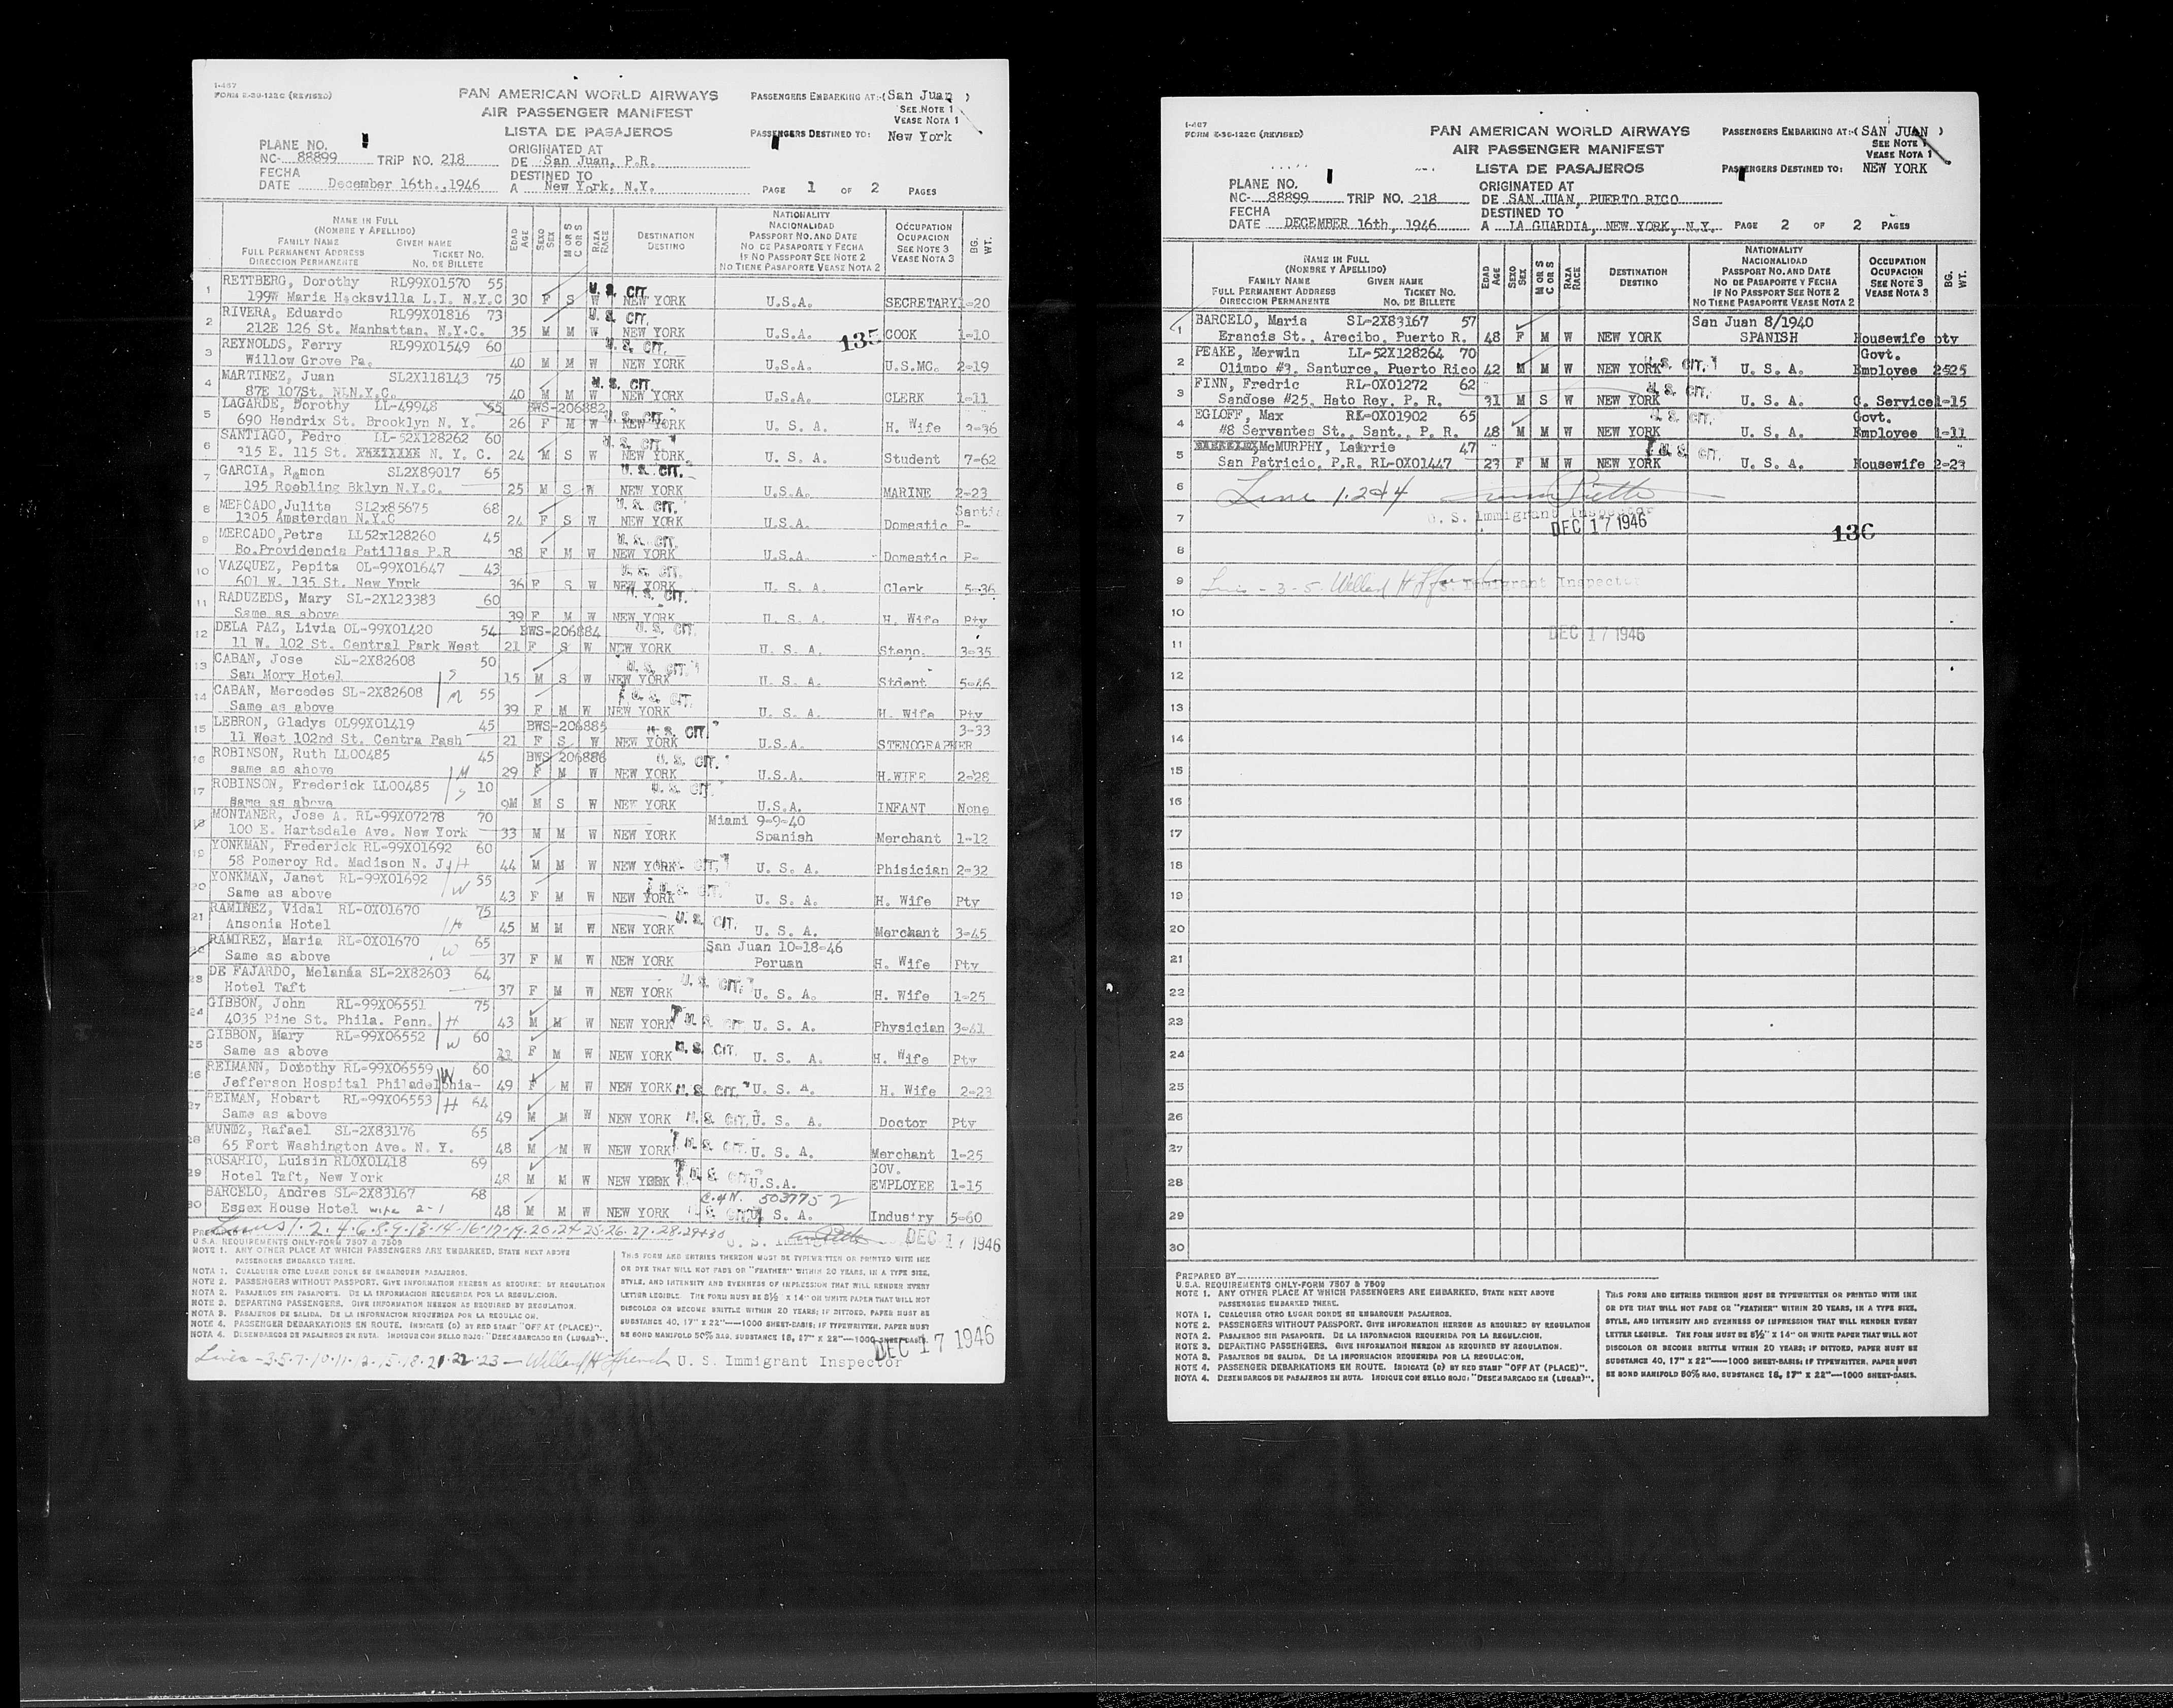 I-467
FORM E-30-122C (REVISED)
PAN AMERICAN WORLD AIRWAYS
AIR PASSENGER MANIFEST
LISTA DE PASAJEROS
PASSENGERS EMBARKING AT:-(San Juan )
SEE NOTE 1
VEASE NOTA 1
PASSENGERS DESTINED TO: New York
PLANE NO.
NC- 88899 TRIP NO. 218
ORIGINATED AT
DE San Juan, P.R.
FECHA
DATE December 16th.,1946
DESTINED TO
A New York, N.Y.
PAGE 1 OF 2 PAGES
NAME IN FULL
(NOMBRE Y APELLIDO)
FAMILY NAME GIVEN NAME
FULL PERMANENT ADDRESS TICKET NO.
DIRECCION PERMANENTE NO. DE BILLETE
EDAD AGE
SEXO SEX
M OR S C OR S
RAZA RACE
DESTINATION
DESTINO
NATIONALITY
NACIONALIDAD
PASSPORT NO. AND DATE
NO DE PASAPORTE Y FECHA
IF NO PASSPORT SEE NOTE 2
NO TIENE PASAPORTE VEASE NOTA 2
OCCUPATION
OCUPACION
SEE NOTE 3
VEASE NOTA 3
BG. WT.
1 RETTBERG, Dorothy RL99X01570 55 U.S. CIT.
199W Maria Hecksvilla L.I. N.Y.C 30 F S W NEW YORK U.S.A. SECRETARY 1-20
2 RIVERA, Eduardo RL99X01816 73 U.S. CIT.
212E 126 St. Manhattan. N.Y.C. 35 M M W NEW YORK U.S.A. 135 COOK 1-10
3 REYNOLDS, Ferry RL99X01549 60 U.S. CIT.
Willow Grove Pa. 40 M M W NEW YORK U.S.A. U.S.MC. 2-19
4 MARTINEZ, Juan SL2X118143 75 U.S. CIT.
87E 107St. NLN.Y.C. 40 M M W NEW YORK U.S.A. CLERK 1-11
5 LAGARDE, Dorothy LL-49948 55 BWS-206882 U.S. CIT.
690 Hendrix St. Brooklyn N. Y. 26 F M W NEW YORK U. S. A. H. Wife 3-36
6 SANTIAGO, Pedro LL-52X128262 60 U.S. CIT.
315 E. 115 St. N. Y. C. 24 M S W NEW YORK U. S. A. Student 7-62
7 GARCIA, Ramon SL2X89017 65 U.S. CIT.
195 Roebling Bklyn N.Y.C. 25 M S W NEW YORK U.S.A. MARINE 2-23
8 MERCADO,Julita SL2x85675 68 U.S. CIT.
1305 Amsterdan N.Y.C 24 F S W NEW YORK U.S.A. Domestic P-
9 MERCADO,Petra LL52x128260 45 U.S. CIT.
Bo.Providencia Patillas P.R 38 F M W NEW YORK U.S.A. Domestic P-
10 VAZQUEZ, Pepita OL-99X01647 43 U.S. CIT.
601 W. 135 St. New York 36 F S W NEW YORK U. S. A. Clerk 5-36
11 RADUZEDS, Mary SL-2X123383 60 U.S. CIT.
Same as above 39 F M W NEW YORK U. S. A. H. Wife Pty
12 DELA PAZ, Livia OL-99X01420 54 BWS-206884 U.S. CIT.
11 W. 102 St. Central Park West 21 F S W NEW YORK U. S. A. Stenn. 3-35
13 CABAN, Jose SL-2X82608 50 U.S. CIT.
San Mory Hotel S 15 M S W NEW YORK U. S. A. Stdent 5-46
14 CABAN, Mercedes SL-2X82608 M 55 U.S. CIT.
Same as above 39 F M W NEW YORK U. S. A. H. Wife Pty
15 LEBRON, Gladys OL99X01419 45 BWS-206885 U.S. CIT. 3-33
11 West 102nd St. Centra Pash 21 F S W NEW YORK U.S.A. STENOGRAPHER
16 ROBINSON, Ruth LL00485 45 BWS 206886 U.S. CIT.
same as above M 29 F M W NEW YORK U.S.A. H.WIFE 2-28
17 ROBINSON, Frederick LL00485 S 10 U.S. CIT.
Same as above 9M M S W NEW YORK U.S.A. INFANT None
18 MONTANER, Jose A. RL-99X07278 70 Miami 9-9-40
100 E. Hartsdale Ave. New York 33 M M W NEW YORK Spanish Merchant 1-12
19 YONKMAN, Frederick RL-99X01692 60
58 Pomeroy Rd. Madison N. J. H 44 M M W NEW YORK U.S. CIT. U. S. A. Phisician 2-32
20 YONKMAN, Janet RL-99X01692 W 55 U.S. CIT.
Same as above 43 F M W NEW YORK U. S. A. H. Wife Pty
21 RAMINEZ, Vidal RL-0X01670 75 U.S. CIT.
Ansonia Hotel H 45 M M W NEW YORK U. S. A. Merchant 3-45
22 RAMIREZ, Maria RL-0X01670 W 65 San Juan 10-18-46
Same as above 37 F M W NEW YORK Peruan H. Wife Pty
23 DE FAJARDO, Melania SL-2X82603 64
Hotel Taft 37 F M W NEW YORK U.S. CIT. U. S. A. H. Wife 1-25
24 GIBBON, John RL-99X06551 75
4035 Pine St. Phila. Penn. H 43 M M W NEW YORK U.S. CIT. U. S. A. Physician 3-41
25 GIBBON, Mary RL-99X06552 W 60
Same as above F M W NEW YORK U.S. CIT. U. S. A. H. Wife Pty
26 REIMANN, Dorothy RL-99X06559 W 60
Jefferson Hospital Philadelphia- 49 F M W NEW YORK U.S. CIT. U. S. A. H. Wife 2-23
27 REIMAN, Hobart RL-99X06553 H 64
Same as above 49 M M W NEW YORK U.S. CIT. U. S. A. Doctor Pty
28 MUNOZ, Rafael SL-2X83176 65
65 Fort Washington Ave. N. Y. 48 M M W NEW YORK U.S. CIT. U. S. A. Merchant 1-25
29 ROSARIO, Luisin RL0X01418 69 GOV.
Hotel Taft, New York 48 M M W NEW YORK U.S. CIT. U.S.A. EMPLOYEE 1-15
30 BARCELO, Andres SL-2X83167 68 C.of N. 5037752
Essex House Hotel wife 2-1 48 M M W NEW YORK U.S. CIT. U. S. A. Industry 5-60
Lines 1.2.4.6.8.9.13.14.16.17.19.20.24.25.26.27.28.29+30 DEC 17 1946
U.S.A. REQUIREMENTS ONLY-FORM 7507 & 7509
NOTE 1. ANY OTHER PLACE AT WHICH PASSENGERS ARE EMBARKED, STATE NEXT ABOVE
PASSENGERS EMBARKED THERE.
NOTA 1. CUALQUIER OTRO LUGAR DONDE SE EMBARQUEN PASAJEROS.
NOTE 2. PASSENGERS WITHOUT PASSPORT. GIVE INFORMATION HEREON AS REQUIRED BY REGULATION
NOTA 2. PASAJEROS SIN PASAPORTE. DE LA INFORMACION REQUERIDA POR LA REGULACION.
NOTE 3. DEPARTING PASSENGERS. GIVE INFORMATION HEREON AS REQUIRED BY REGULATION.
NOTA 3. PASAJEROS DE SALIDA. DE LA INFORMACION REQUERIDA POR LA REGULACION.
NOTE 4. PASSENGER DEBARKATIONS EN ROUTE. INDICATE (D) BY RED STAMP "OFF AT (PLACE)".
NOTA 4. DESEMBARCOS DE PASAJEROS EN RUTA. INDIQUE CON SELLO ROJO: "DESEMBARCADO EN (LUGAR)".
THIS FORM AND ENTRIES THEREON MUST BE TYPEWRITTEN OR PRINTED WITH INK
OR DYE THAT WILL NOT FADE OR "FEATHER" WITHIN 20 YEARS, IN A TYPE SIZE,
STYLE, AND INTENSITY AND EVENNESS OF IMPRESSION THAT WILL RENDER EVERY
LETTER LEGIBLE. THE FORM MUST BE 8½ X 14" OR WHITE PAPER THAT WILL NOT
DISCOLOR OR BECOME BRITTLE WITHIN 20 YEARS; IF DITTOED, PAPER MUST BE
SUBSTANCE 40, 17" X 22"——1000 SHEET-BASIS; IF TYPEWRITTEN, PAPER MUST
BE BOND MANIFOLD 50% RAG, SUBSTANCE 18, 17" X 22"—1000 SHEET-BASIS.
DEC 17 1946
Lines -3.5.7.10.11.12.15.18.21.22.23- Willard H French U. S. Immigrant Inspector
I-467
FORM E-30-122C (REVISED)
PAN AMERICAN WORLD AIRWAYS
AIR PASSENGER MANIFEST
LISTA DE PASAJEROS
PASSENGERS EMBARKING AT:-( SAN JUAN )
SEE NOTE 1
VEASE NOTA 1
PASSENGERS DESTINED TO: NEW YORK
PLANE NO.
NC- 88899 TRIP NO. 218
ORIGINATED AT
DE SAN JUAN, PUERTO RICO
FECHA
DATE DECEMBER 16th, 1946
DESTINED TO
A LA GUARDIA, NEW YORK, N.Y.
PAGE 2 OF 2 PAGES
NAME IN FULL
(NOMBRE Y APELLIDO)
FAMILY NAME GIVEN NAME
FULL PERMANENT ADDRESS TICKET NO.
DIRECCION PERMANENTE NO. DE BILLETE
EDAD AGE
SEXO SEX
M OR S C OR S
RAZA RACE
DESTINATION
DESTINO
NATIONALITY
NACIONALIDAD
PASSPORT NO. AND DATE
NO DE PASAPORTE Y FECHA
IF NO PASSPORT SEE NOTE 2
NO TIENE PASAPORTE VEASE NOTA 2
OCCUPATION
OCUPACION
SEE NOTE 3
VEASE NOTA 3
BG. WT.
1 BARCELO, Maria SL-2X83167 57 San Juan 8/1940
Francis St., Arecibo, Puerto R. 48 F M W NEW YORK SPANISH Housewife pty
2 PEAKE, Merwin LL-52X128264 70 Govt.
Olimpo #3, Santurce, Puerto Rico 42 M M W NEW YORK U.S. CIT. U. S. A. Employee 2525
3 FINN, Fredric RL-0X01272 62 U.S. CIT.
SanJose #25, Hato Rey, P. R. 31 M S W NEW YORK U. S. A. C. Service 1-15
4 EGLOFF, Max RL-0X01902 65 U.S. CIT. Govt.
#8 Servantes St., Sant., P. R. 48 M M W NEW YORK U. S. A. Employee 1-11
5 McMURPHY, Leárrie 47 U.S. CIT.
San Patricio, P.R. RL-0X01447 23 F M W NEW YORK U. S. A. Housewife 2-23
6 Line 1.2+4
7 U. S. Immigrant Inspector
DEC 17 1946
136
8
9 Lines - 3-5- Willard H French U. S. Immigrant Inspector
10
DEC 17 1946
11
12
13
14
15
16
17
18
19
20
21
22
23
24
25
26
27
28
29
30
PREPARED BY
U.S.A. REQUIREMENTS ONLY-FORM 7507 & 7509
NOTE 1. ANY OTHER PLACE AT WHICH PASSENGERS ARE EMBARKED, STATE NEXT ABOVE
PASSENGERS EMBARKED THERE.
NOTA 1. CUALQUIER OTRO LUGAR DONDE SE EMBARQUEN PASAJEROS.
NOTE 2. PASSENGERS WITHOUT PASSPORT. GIVE INFORMATION HEREON AS REQUIRED BY REGULATION
NOTA 2. PASAJEROS SIN PASAPORTE. DE LA INFORMACION REQUERIDA POR LA REGULACION.
NOTE 3. DEPARTING PASSENGERS. GIVE INFORMATION HEREON AS REQUIRED BY REGULATION.
NOTA 3. PASAJEROS DE SALIDA. DE LA INFORMACION REQUERIDA POR LA REGULACION.
NOTE 4. PASSENGER DEBARKATIONS EN ROUTE. INDICATE (D) BY RED STAMP "OFF AT (PLACE)".
NOTA 4. DESEMBARCOS DE PASAJEROS EN RUTA. INDIQUE CON SELLO ROJO: "DESEMBARCADO EN (LUGAR)".
THIS FORM AND ENTRIES THEREON MUST BE TYPEWRITTEN OR PRINTED WITH INK
OR DYE THAT WILL NOT FADE OR "FEATHER" WITHIN 20 YEARS, IN A TYPE SIZE,
STYLE, AND INTENSITY AND EVENNESS OF IMPRESSION THAT WILL RENDER EVERY
LETTER LEGIBLE. THE FORM MUST BE 8½" X 14" OR WHITE PAPER THAT WILL NOT
DISCOLOR OR BECOME BRITTLE WITHIN 20 YEARS; IF DITTOED, PAPER MUST BE
SUBSTANCE 40, 17" X 22"——1000 SHEET-BASIS; IF TYPEWRITTEN, PAPER MUST
BE BOND MANIFOLD 50% RAG, SUBSTANCE 18, 17" X 22"—1000 SHEET-BASIS.